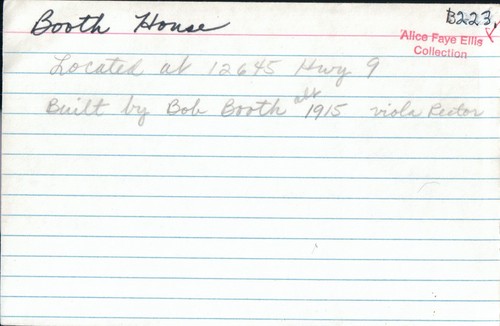 Booth House
B223
Alice Faye Ellis
Collection
Located at 12645 Hwy 9
Built by Bob Booth abt 1915 viola Rector